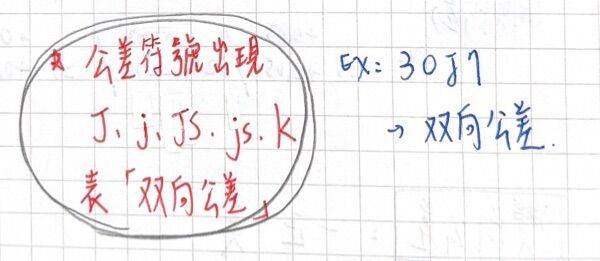 * 公差符號出現
J、j、JS、js、k
表「双向公差」
EX: 30J7
→ 双向公差.